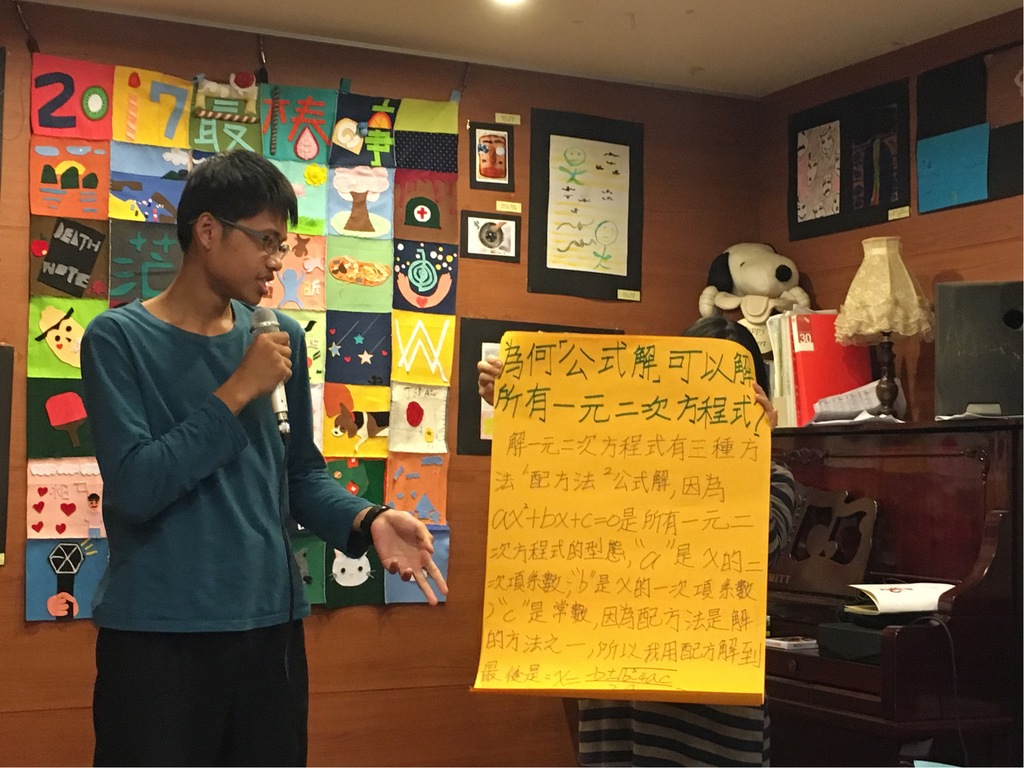 2017最棒
DEATH
NOTE
茫
30
為何「公式解」可以解
所有一元二次方程式?
解一元二次方程式有三種方
法 1配方法 2公式解,因為
ax²+bx+c=0是所有一元二
次方程式的型態,"a"是x的二
次項系數;"b"是x的一次項系數
;"c"是常數,因為配方法是解
的方法之一,所以我用配方解到
最後是:x=